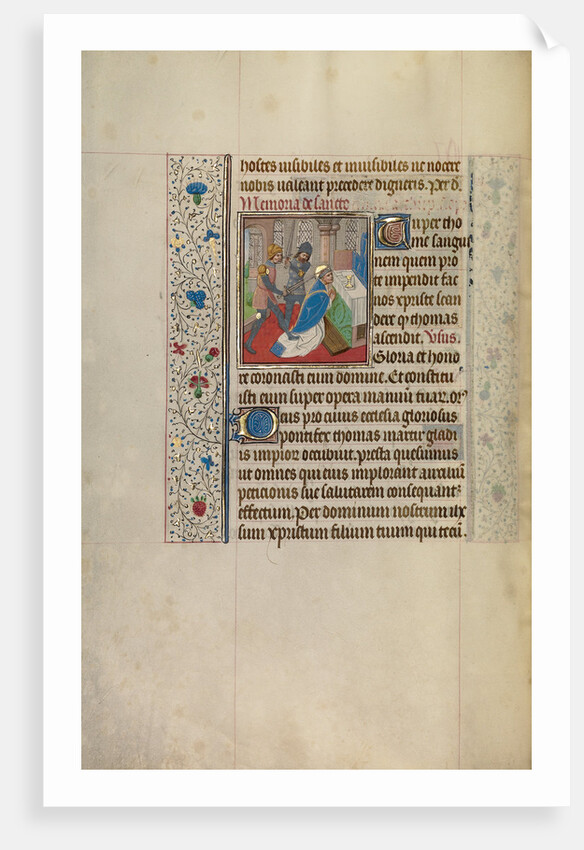 hostes uisibiles et inuisibiles ne nocere
nobis ualeant precedere digneris. Per d.
Memoria de sancto
Tu per tho
me sangui
nem quem pro
te impendit fac
nos xpriste scan
dere qͦ thomas
ascendit. Vsus.
Gloria et hono
re coronasti eum domine. Et constitu
isti eum super opera manuū tuar. or͛
Deus pro cuius ecclesia gloriosus
pontifex thomas martir gladi
is impior occubuit. presta quesumus
ut omnes qui eius implorant auxiliū
peticionis sue salutarem consequant᷑
effectum. Per dominum nostrum ihe
sum xpristum filium tuum qui tecū.